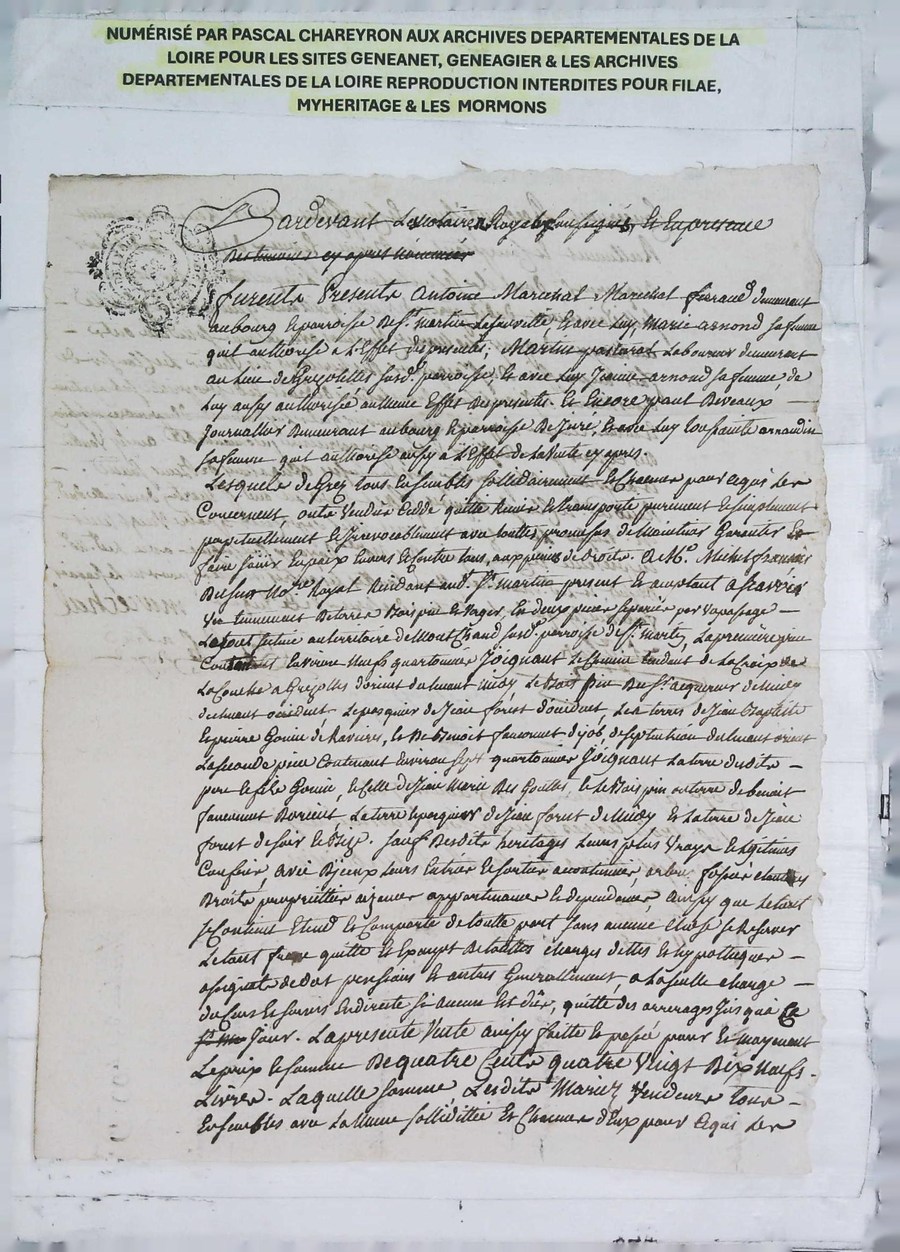 NUMÉRISÉ PAR PASCAL CHAREYRON AUX ARCHIVES DEPARTEMENTALES DE LA
LOIRE POUR LES SITES GENEANET, GENEAGIER & LES ARCHIVES
DEPARTEMENTALES DE LA LOIRE REPRODUCTION INTERDITES POUR FILAE,
MYHERITAGE & LES MORMONS
Pardevant Les notaires Royaux soussignés Et En presence
Des temoins cy apres nommés
furente Presente Antoine Marechal Marechal demeurant
au bourg & parroisse De St martin La sauveté Et avec Luy Marie arnond sa femme
quil authorise a L'Effet des presentes, Martin Laboureur demeurant
au Lieu de Grezolettes susde parroisse, Et avec Luy Jeanne arnond sa femme, de
Luy aussy authorisée au meme Effet Des presentes. Et Encore paul Beveaux
Journallier Demeurant au bourg & parroisse De Juré, Et avec Luy
sa femme quil authorise aussy a L'Effet de La Vente cy apres.
Lesquels de Grez tous Ensembles sollidairement Et Chacun pour Ce qui Les
Concernent, ont Vendu Ceddé quitté Remis Et transporté purement & simplement
perpetuellement & Irrevocablement avec touttes promesses de Maintenir Garentir Et
faire Jouir En paix Envers & Contre tous, aux peines de droits. A Me Michel francois
Dusus Nore Royal Residant aud. St martin present Et acceptant a scavoir
Un tennement De terre Bois pin & Verger, En deux pieces separées par Un passage
Le tout scitué au territoire de Mont Chand susde parroisse de St martin, La premiere piece
Contenant Environ Neufs quartonnées Joignant Le Chemin tendant de La Croix de
La Couche a Grezolles d'orient declinant midy, Le Bois pin Du Sr acquereur de Midy
declinant occident, Le pasquier de Jean foret d'occident, Les terres de Jean Baptiste
Et pierre Gonin de Ravieres, & De Benoit fauconnet d'job, de septentrion declinant orient
La seconde piece Contenant Environ sept quartonnées Joignant La terre desdits
pere & fils Gonin, & Celle de Jean Marie Des Gouttes, & Le Bois pin ou terre de benoit
fauconnet D'orient La terre & pasquier de Jean foret de Midy Et La terre de Jean
foret de soir & Bize. sauf Desdits heritages Leurs plus Vrays & Legitimes
Confins, avec D'jceux Leurs Entrées & sorties accoutumées, arbres fossés
Droits proprietés aizances appartenances & dependances, Ainsy que Le tout
se Contient Etend Et Comporte de toutte part sans aucune Chose se Reserver
Le tout franc quitte Et Exempt De touttes charges dettes Et hypotteques
assignats de dot pensions Et autres Generallement, a La seulle charge
du Cens Et servis En directe si aucuns Est dus, quitte des arrerages Jusqu'a Ce
Jour. La presente Vente ainsy faitte Et passée pour Et moyenant
Le prix & somme De quatre Cents quatre Vingt Dix Neufs
Livres. Laquelle somme Lesdits Mariez Vendeurs tous
Ensembles avec La meme solliditté Et Chacun d'Eux pour Ce qui Les